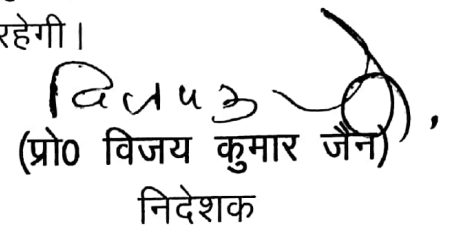 रहेगी।
(प्रो0 विजय कुमार जैन)
निदेशक